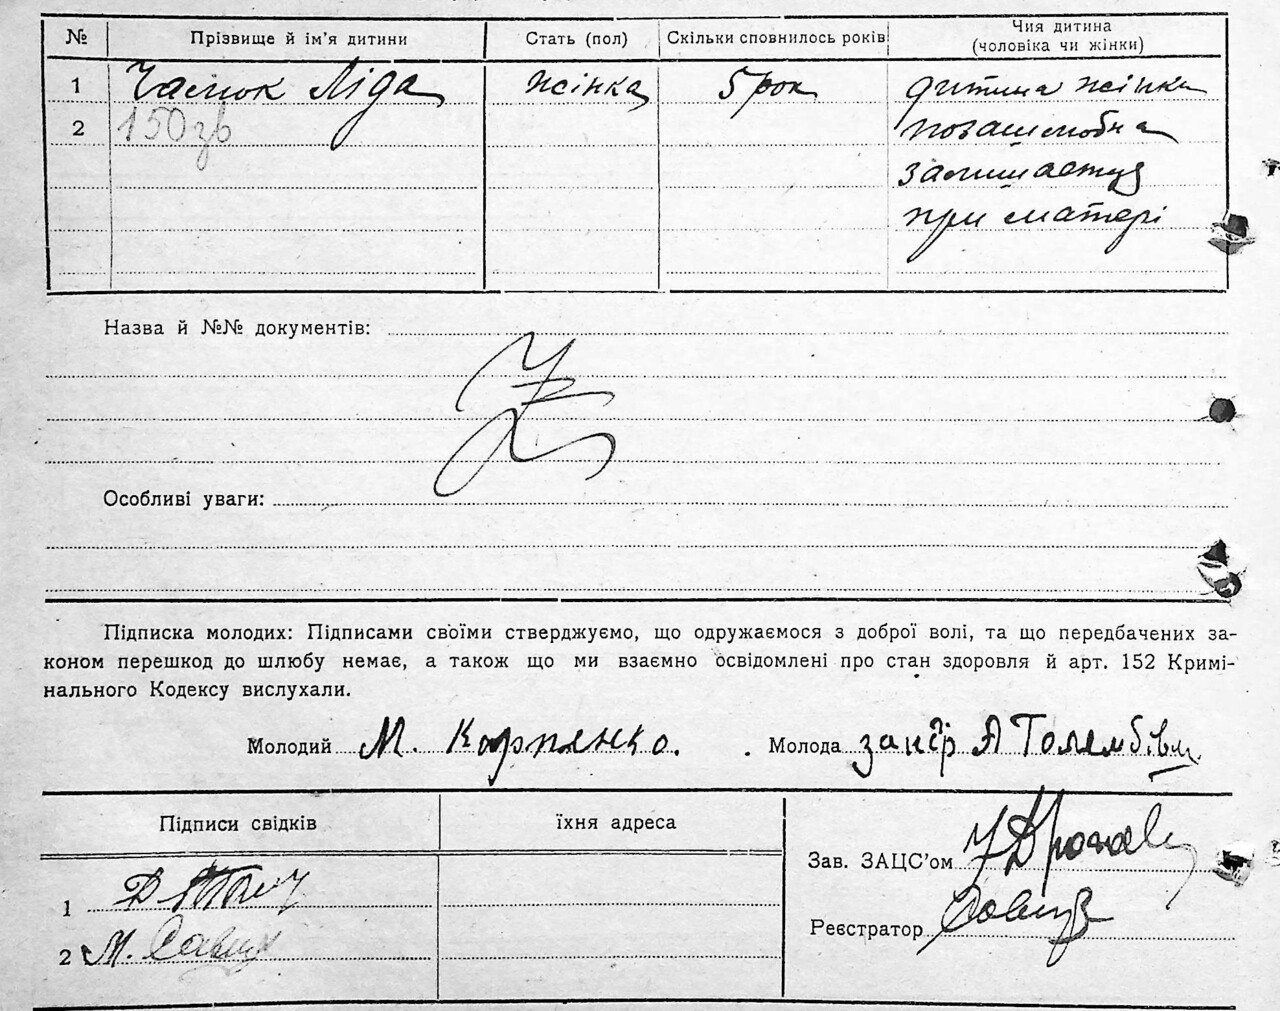 № Прізвище й ім'я дитини Стать (пол) Скільки сповнилось років Чия дитина (чоловіка чи жінки)
1 Ліда жінка 5 рок дитина жінки
2 150 зв позашлюбна
залишається
при матері
Назва й №№ документів:
Особливі уваги:
Підписка молодих: Підписами своїми стверджуємо, що одружаємося з доброї волі, та що передбачених за-
коном перешкод до шлюбу немає, а також що ми взаємно освідомлені про стан здоровля й арт. 152 Кримі-
нального Кодексу вислухали.
Молодий М. Карпянко. Молода
Підписи свідків їхня адреса
Зав. ЗАЦС'ом
1
Реєстратор
2 М.